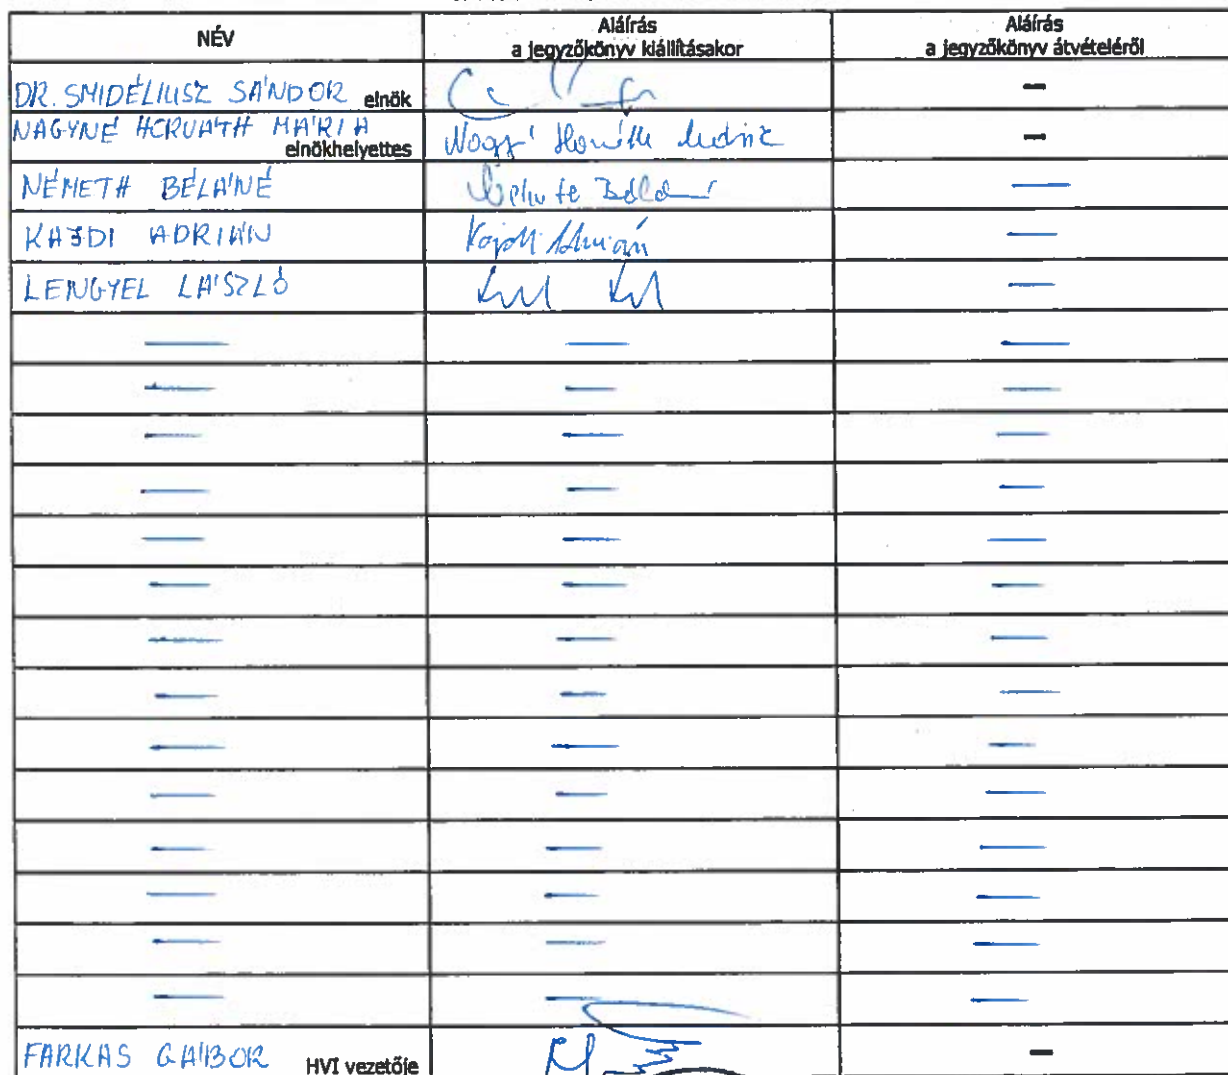 NÉV
Aláírás
a jegyzőkönyv kiállításakor
Aláírás
a jegyzőkönyv átvételéről
DR. SMIDÉLIUSZ SÁNDOR elnök
—
NAGYNÉ HORVÁTH MÁRIA
elnökhelyettes
—
NÉMETH BÉLÁNÉ
—
KAJDI ADRIÁN
Kajdi Adrián
—
LENGYEL LÁSZLÓ
—
— — —
— — —
— — —
— — —
— — —
— — —
— — —
— — —
— — —
— — —
— — —
— — —
— — —
— — —
FARKAS GÁBOR HVI vezetője
—